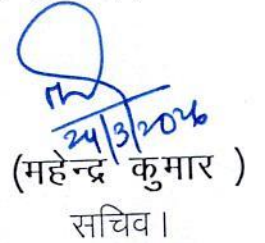 24/3/2026
(महेन्द्र कुमार )
सचिव।